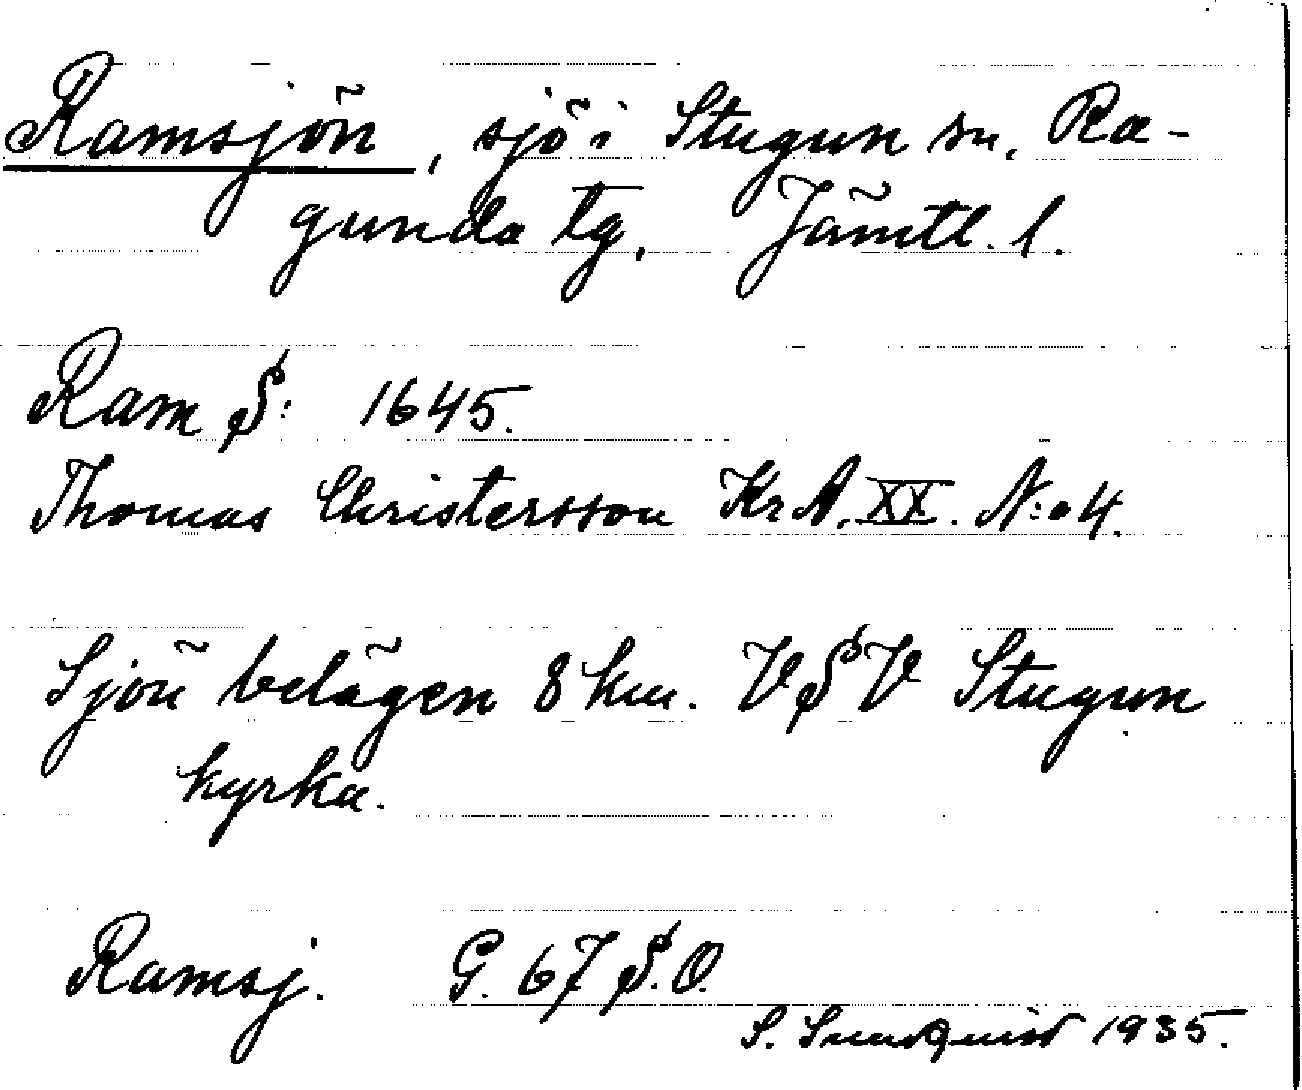 Ramsjön, sjö i Stugun sn, Ra-
gunda tg, Jämtl. l.
Ram S: 1645.
Thomas Christersson Kr A. XX. N:o 4.
Sjön belägen 8 km. VSV Stugun
kyrka.
Ramsj. G. 67 S.O.
S. Sundquist 1935.